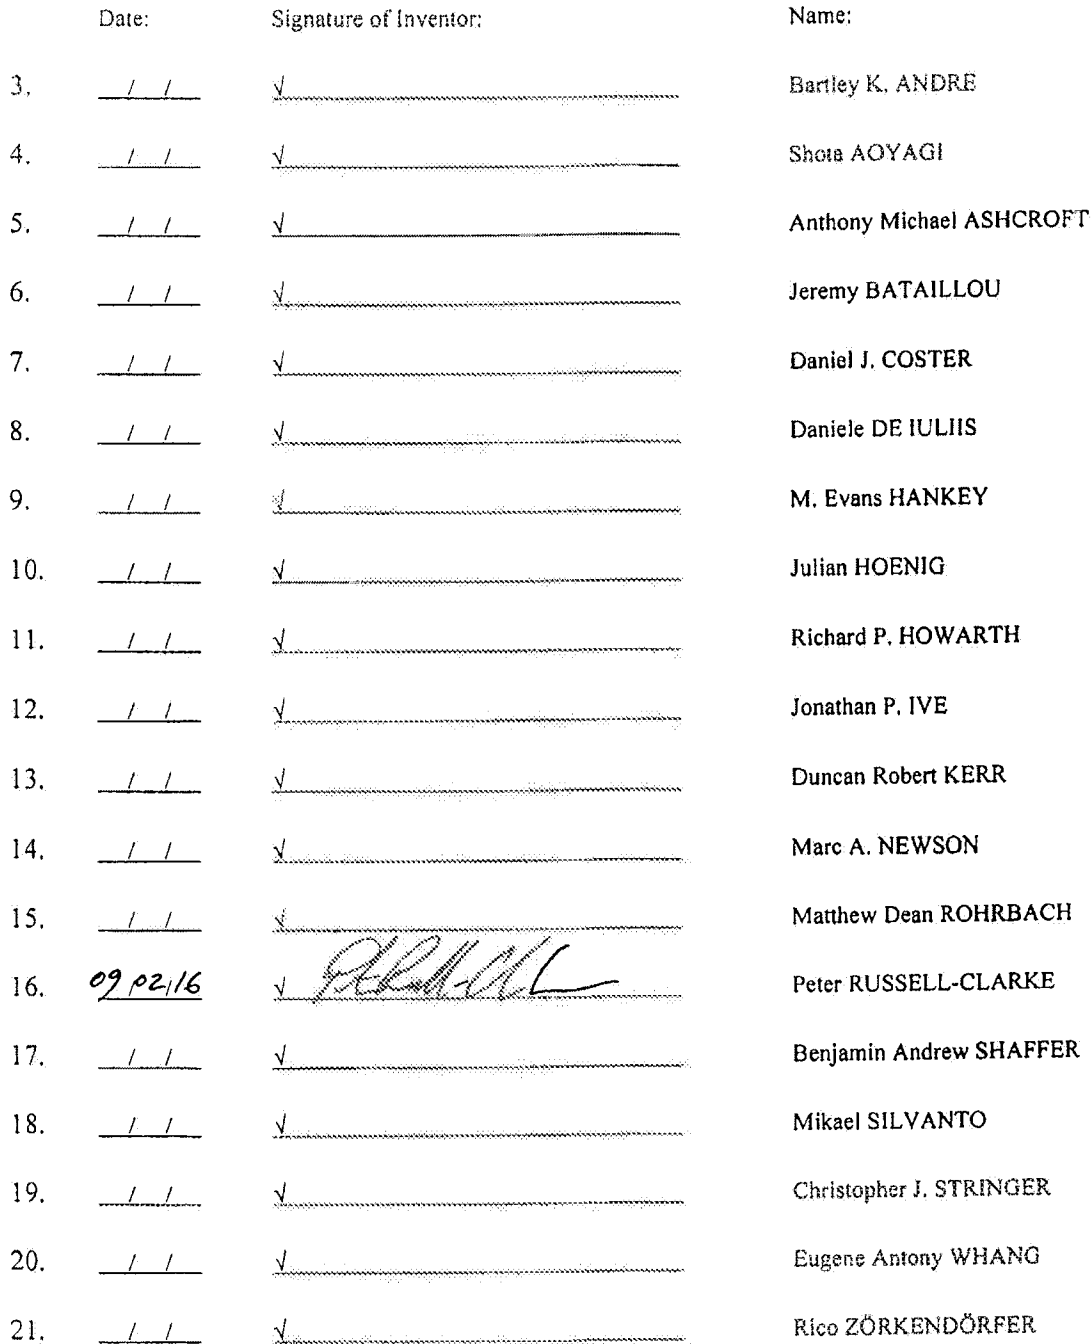 Date: Signature of Inventor: Name:
3. / / √ Bartley K. ANDRE
4. / / √ Shota AOYAGI
5. / / √ Anthony Michael ASHCROFT
6. / / √ Jeremy BATAILLOU
7. / / √ Daniel J. COSTER
8. / / √ Daniele DE IULIIS
9. / / √ M. Evans HANKEY
10. / / √ Julian HOENIG
11. / / √ Richard P. HOWARTH
12. / / √ Jonathan P. IVE
13. / / √ Duncan Robert KERR
14. / / √ Marc A. NEWSON
15. / / √ Matthew Dean ROHRBACH
16. 09/02/16 √ Peter RUSSELL-CLARKE
17. / / √ Benjamin Andrew SHAFFER
18. / / √ Mikael SILVANTO
19. / / √ Christopher J. STRINGER
20. / / √ Eugene Antony WHANG
21. / / √ Rico ZÖRKENDÖRFER